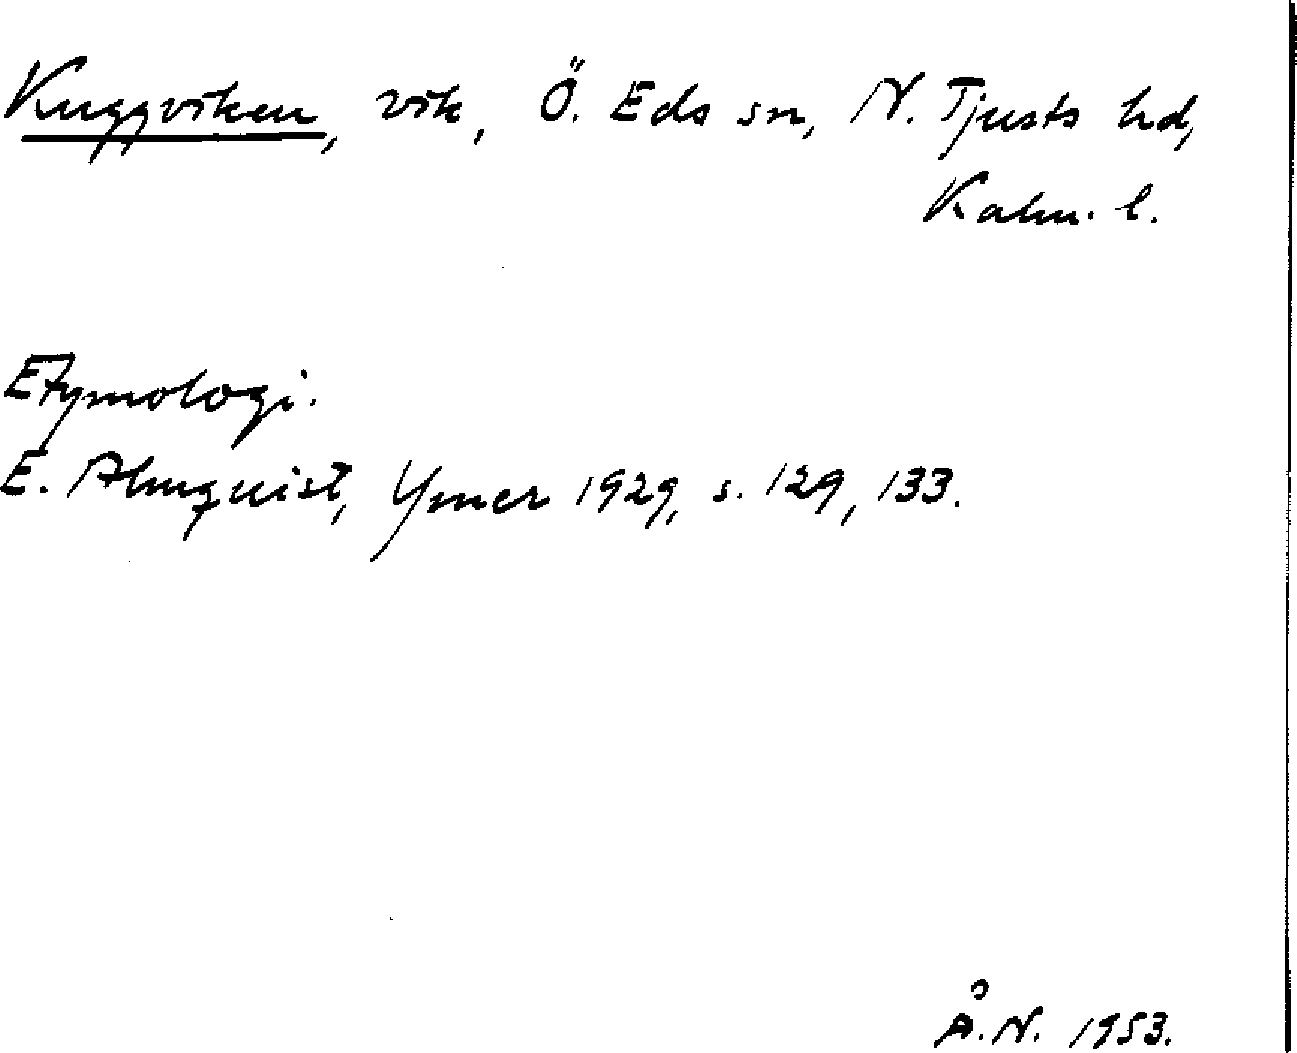 Kuggviken, vik, Ö. Eds sn, N. Tjusts hd,
Kalm. l.
Etymologi.
E. Almquist, Ymer 1929, s. 129, 133.
Å.N. 1953.